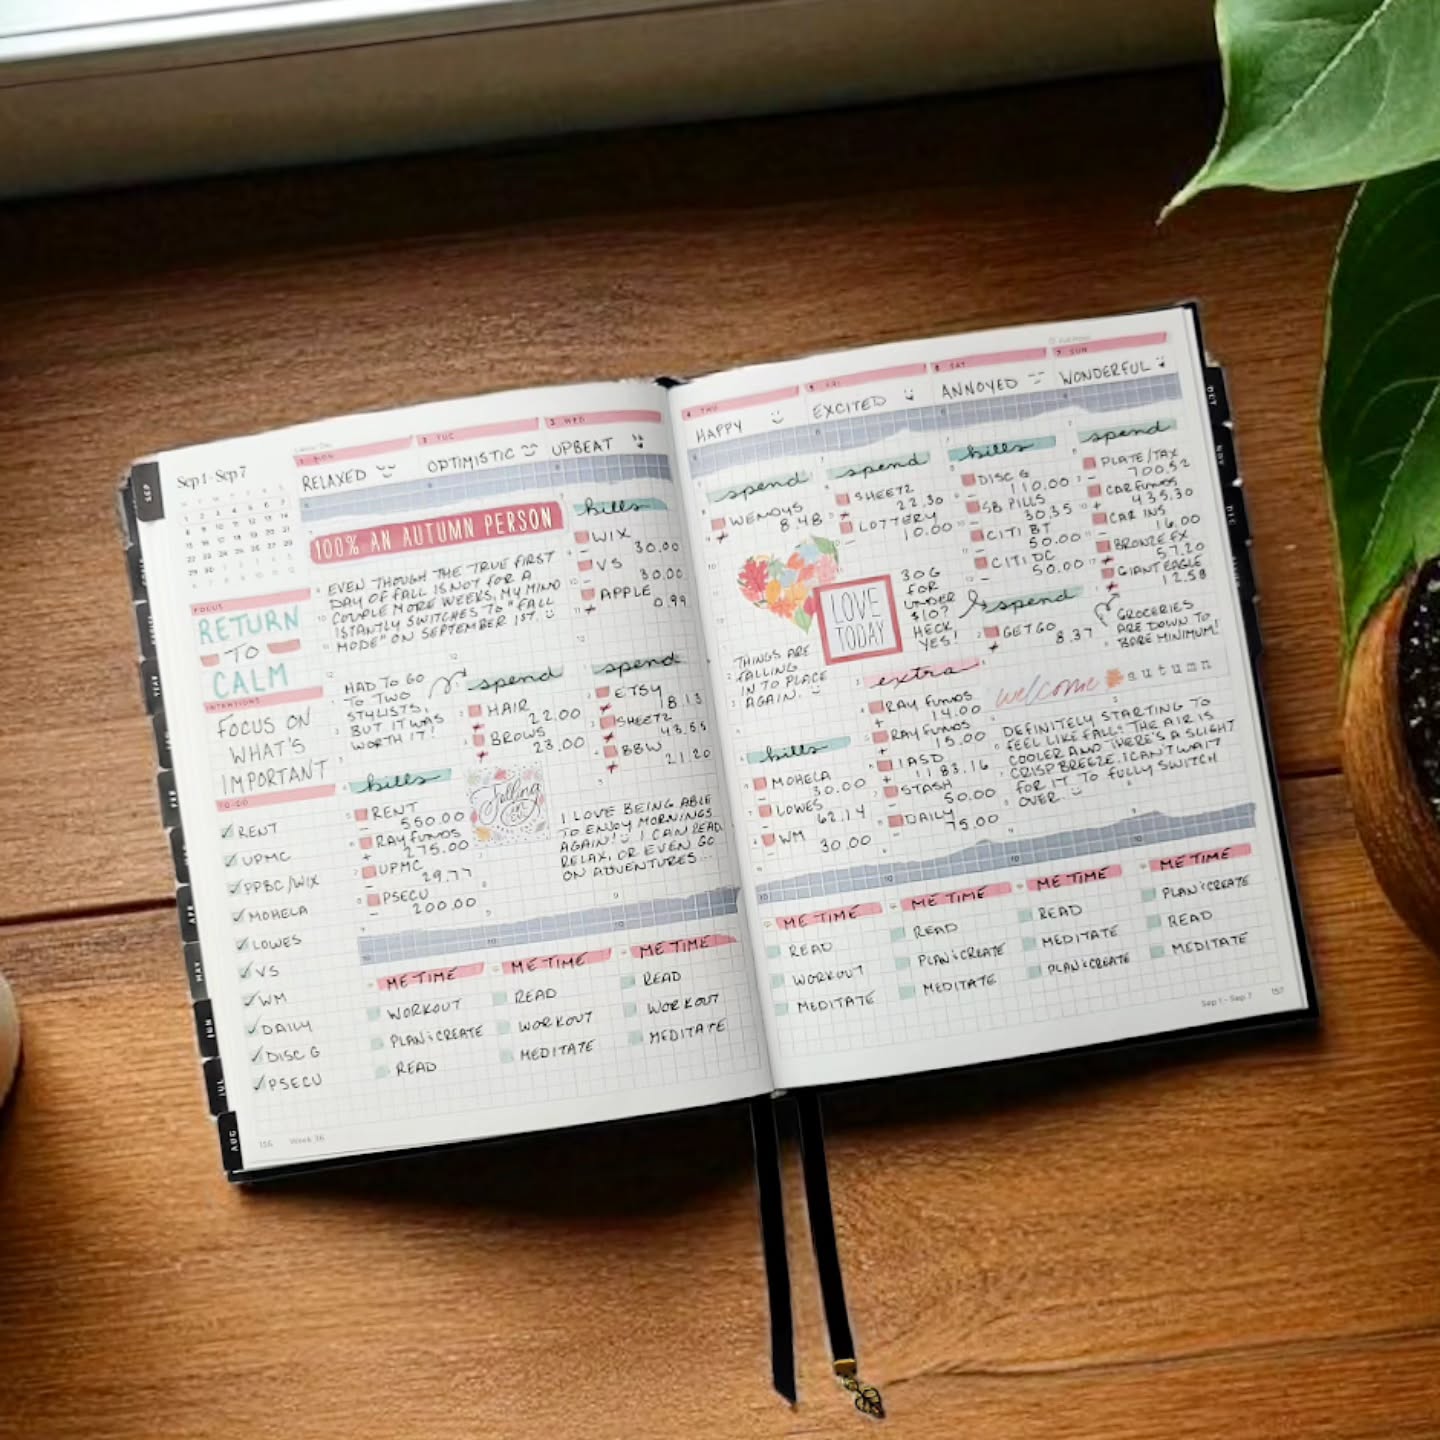 Sep 1 - Sep 7
FOCUS
RETURN
TO
CALM
INTENTIONS
FOCUS ON
WHAT'S
IMPORTANT
TO-DO
✓ RENT
✓ UPMC
✓ PPBC/WIX
✓ MOHELA
✓ LOWES
✓ VS
✓ WM
✓ DAILY
✓ DISC G
✓ PSECU
156 Week 36
1 MON
RELAXED
2 TUE
OPTIMISTIC
3 WED
UPBEAT
100% AN AUTUMN PERSON
EVEN THOUGH THE TRUE FIRST
DAY OF FALL IS NOT FOR A
COUPLE MORE WEEKS, MY MIND
ISTANTLY SWITCHES TO "FALL
MODE" ON SEPTEMBER 1ST.
HAD TO GO
TO TWO
STYLISTS,
BUT IT WAS
WORTH IT!
bills
RENT
- 550.00
RAY FUNDS
+ 275.00
UPMC
- 29.77
PSECU
- 200.00
spend
HAIR
22.00
BROWS
23.00
Falling
in
love
bills
WIX
- 30.00
VS
- 30.00
APPLE
0.99
spend
ETSY
18.13
SHEETZ
43.55
BBW
21.20
I LOVE BEING ABLE
TO ENJOY MORNINGS
AGAIN! I CAN READ,
RELAX, OR EVEN GO
ON ADVENTURES...
ME TIME
WORKOUT
PLAN & CREATE
READ
ME TIME
READ
WORKOUT
MEDITATE
ME TIME
READ
WORKOUT
MEDITATE
4 THU
HAPPY
5 FRI
EXCITED
6 SAT
ANNOYED
7 SUN
WONDERFUL
spend
WENDYS
8.48
LOVE
TODAY
THINGS ARE
FALLING
IN TO PLACE
AGAIN.
bills
MOHELA
- 30.00
LOWES
- 62.14
WM
- 30.00
spend
SHEETZ
22.30
LOTTERY
- 10.00
30G
FOR
UNDER
$10?
HECK
YES!
extra
RAY FUNDS
+ 14.00
RAY FUNDS
+ 15.00
IASD
+ 1183.16
STASH
- 50.00
DAILY
- 75.00
bills
DISC G
- 110.00
SB PILLS
- 30.35
CITI BT
- 50.00
CITI DC
- 50.00
spend
GETGO
8.37
spend
PLATE/TAX
- 700.52
CAR FUNDS
+ 435.30
CAR INS
- 16.00
BRONZE FX
57.20
GIANT EAGLE
12.58
GROCERIES
ARE DOWN TO
BARE MINIMUM!
welcome autumn
DEFINITELY STARTING TO
FEEL LIKE FALL! THE AIR IS
COOLER AND THERE'S A SLIGHT
CRISP BREEZE. I CAN'T WAIT
FOR IT TO FULLY SWITCH
OVER.
ME TIME
READ
WORKOUT
MEDITATE
ME TIME
READ
PLAN & CREATE
MEDITATE
ME TIME
READ
MEDITATE
PLAN & CREATE
ME TIME
PLAN & CREATE
READ
MEDITATE
Sep 1 - Sep 7 157
SEP
FEB
MAR
APR
MAY
JUN
JUL
AUG
OCT
NOV
DEC